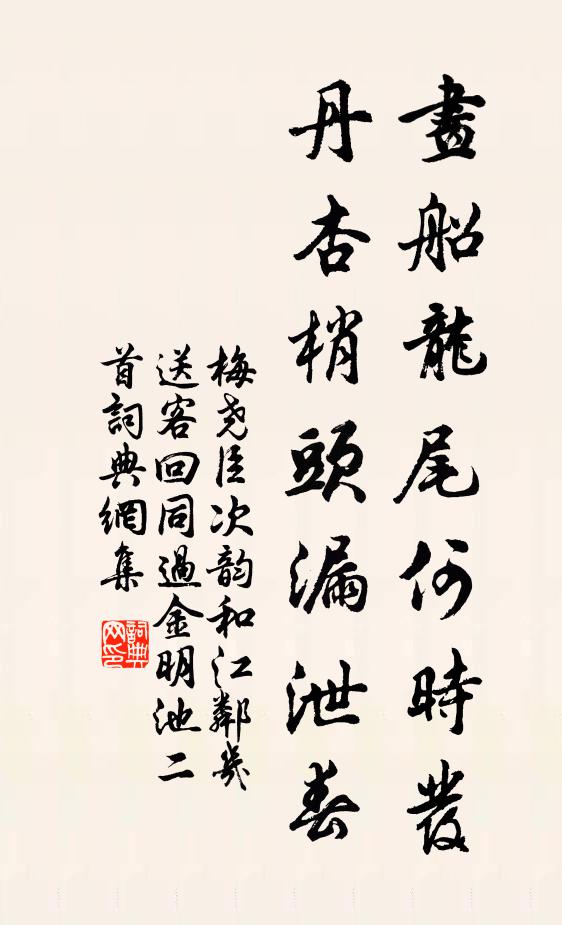 畫船龍尾何時發
丹杏梢頭漏泄春
梅尧臣次韵和江鄰幾
送客回同過金明池二
首詞典網集
詞典
网印